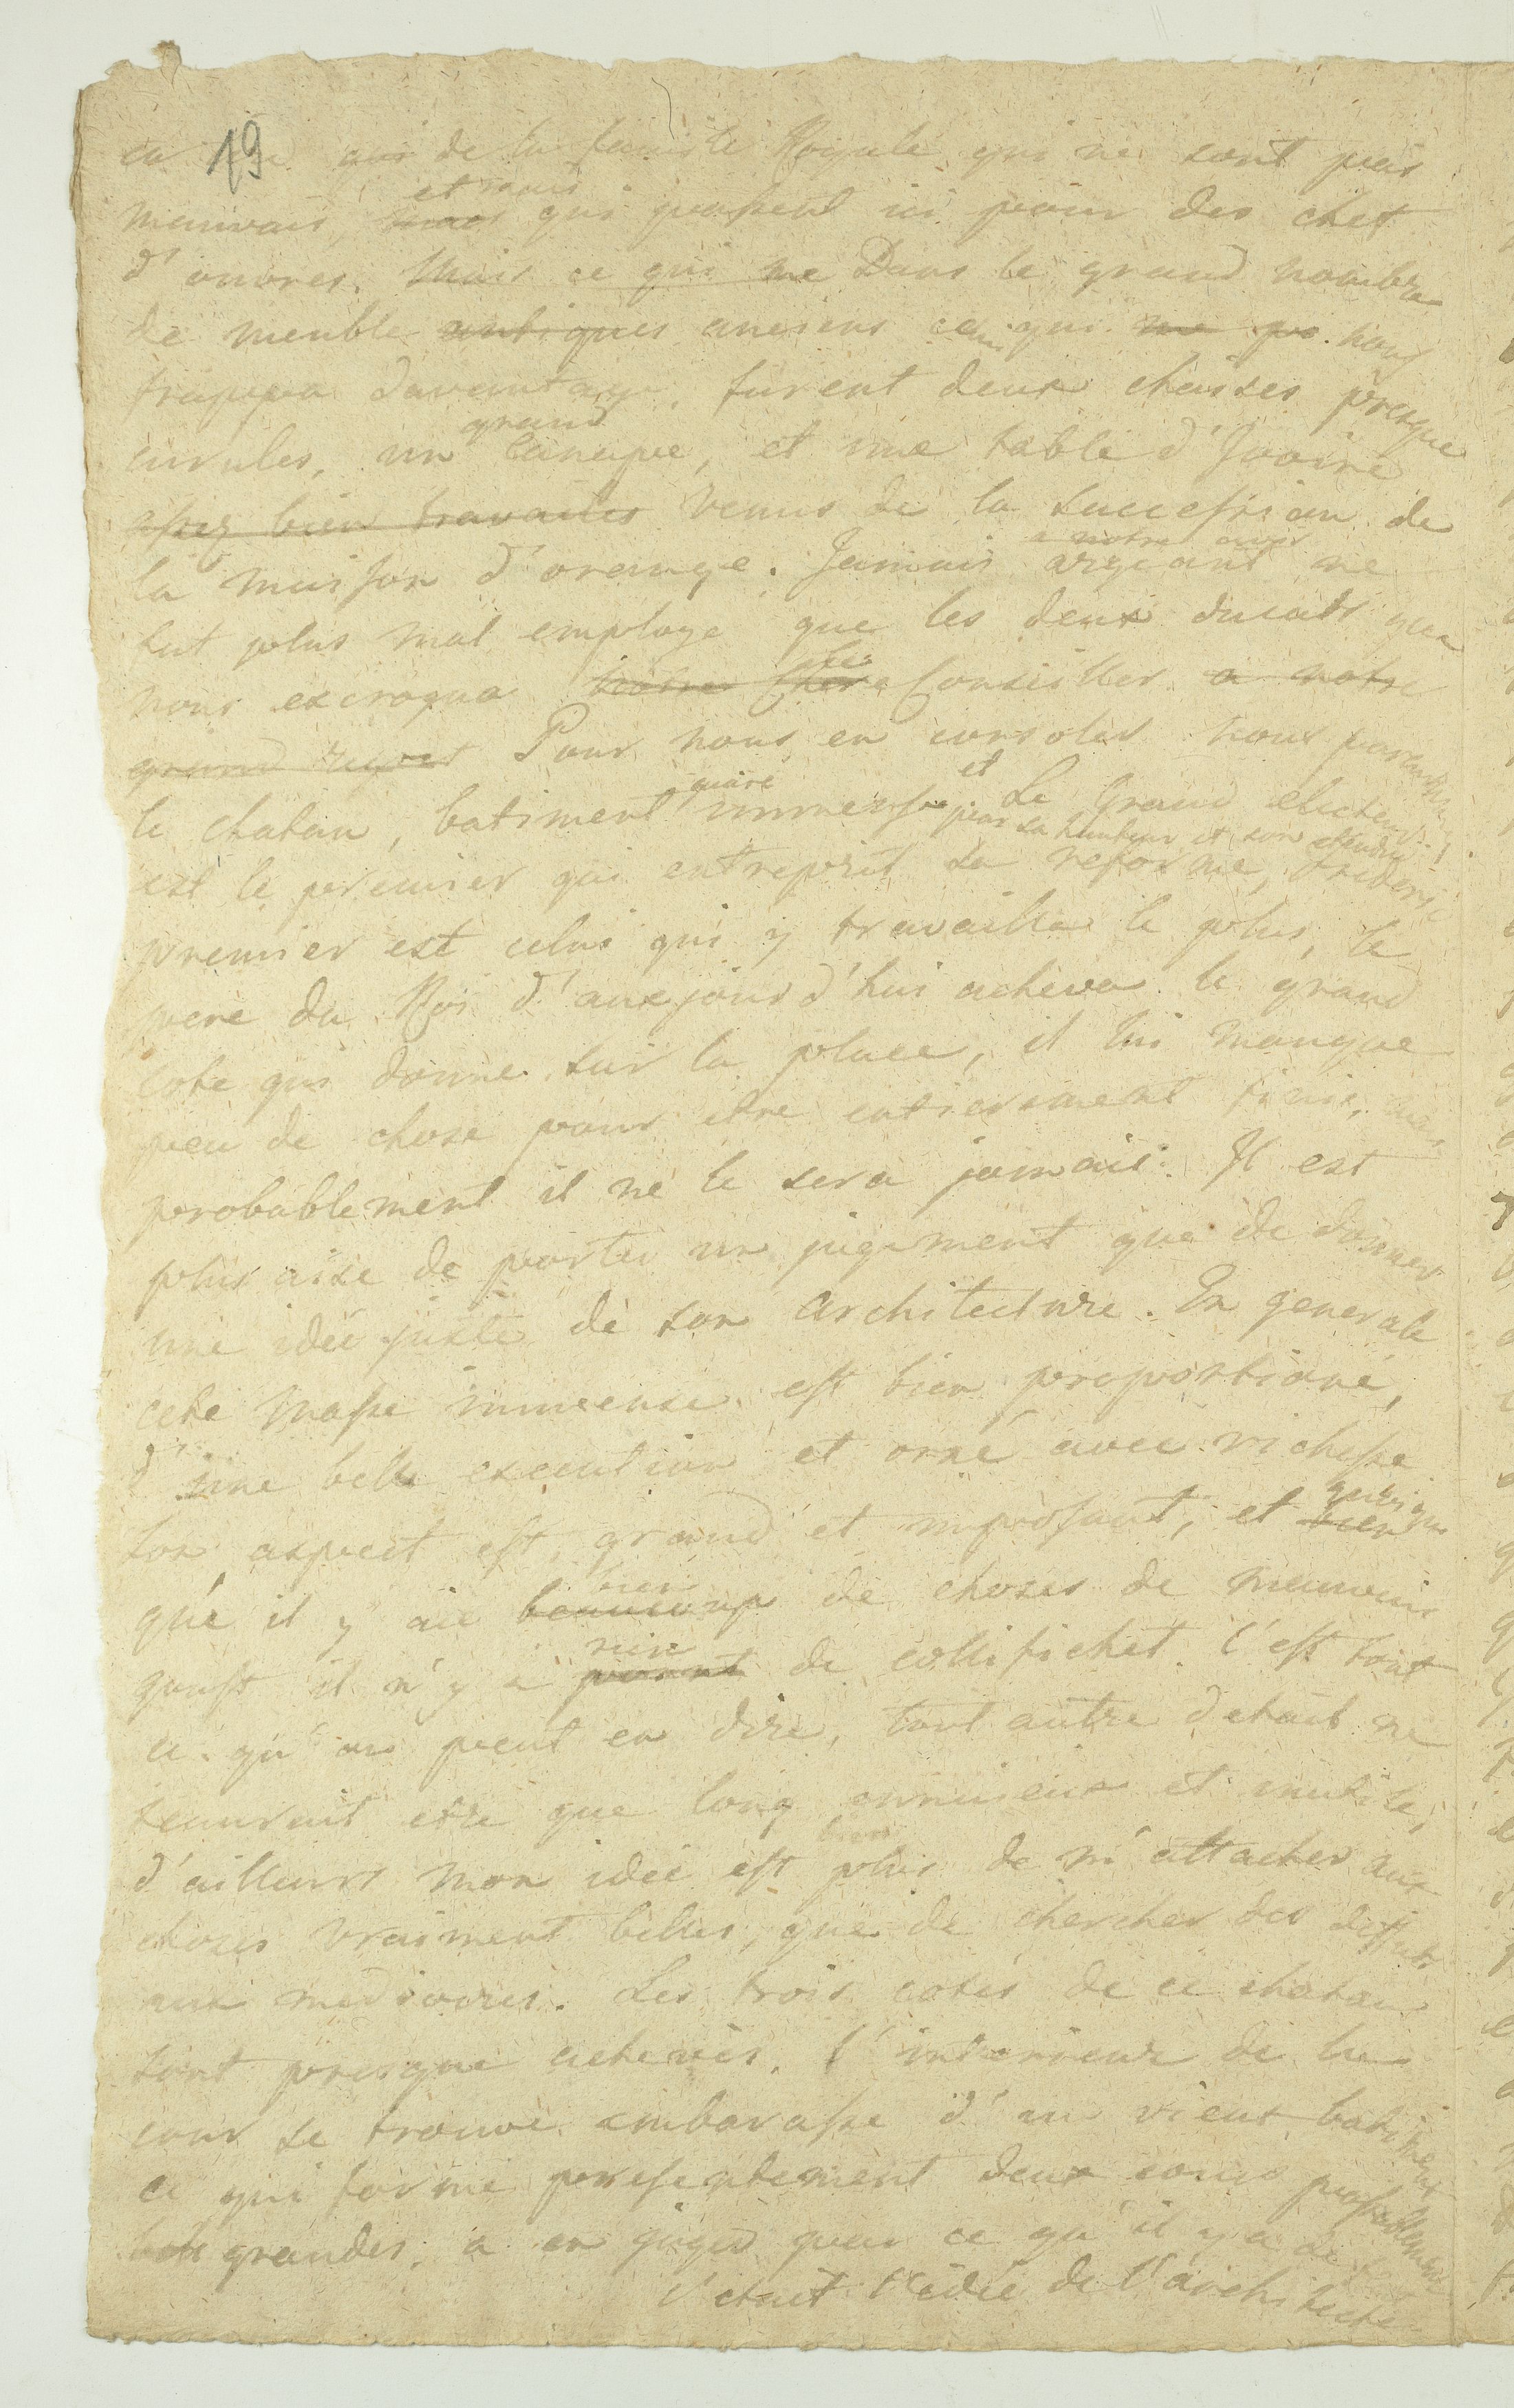 19
de la famile Royale qui ne sont pas
et mais
mauvais, mais qui passent ici pour des chef
d'ouvres. Mais ce qui me Dans le grand nombre
de meuble antiques anciens celui qui me nous
frappa davantage furent deux chaises presque
grand
curules, un canape, et une table d'Ivoire
assez bien travailes venus de la succession de
a notre avis
la maison d'orange. Jamais argeant ne
fut plus mal employe que les deux ducats que
nous excroqua notre cher Conseiller a notre
grand regret Pour nous en consoler nous
quaré et
le chatau, batiment immense Le Grand electeur
par sa hauteur et son etendue
est le premier qui entreprit sa reforme, Frideric
premier est celui qui y travailla le plus, le
pere du Roi d'aux jour d'hui acheva le grand
coté qui donne sur la place, il lui manque
peu de chose pour etre entierement finie, mais
probablement il ne le sera jamais. Il est
plus aise de porter un jugement que de donner
une idée juste de son architecture. En generale
cete masse immense est bien proportioné,
d'une belle execution et orné avec richesse
son aspect est grand et imposant, et
quoique
que il y aie beaucoup de choses de mauvais
bien
goust il n'y a point de collifichet. C'est tout
rien
ce qu'on peut en dire, tout autre detail ne
sauroit etre que long ennuieux et inutile,
bien
d'ailleurs mon idée est plus de m'attacher aux
choses vraiment belles, que de chercher des deffauts
aux mediocres. Les trois cotés de ce chatau
sont presque achevés. l'interieur de la
cour se trouve embarasse d'un vieux batiment
ce qui forme presentement deux cours passablement
grandes, a en juger par ce qu'il y a de fait
c'etait l'idée de l'architecte